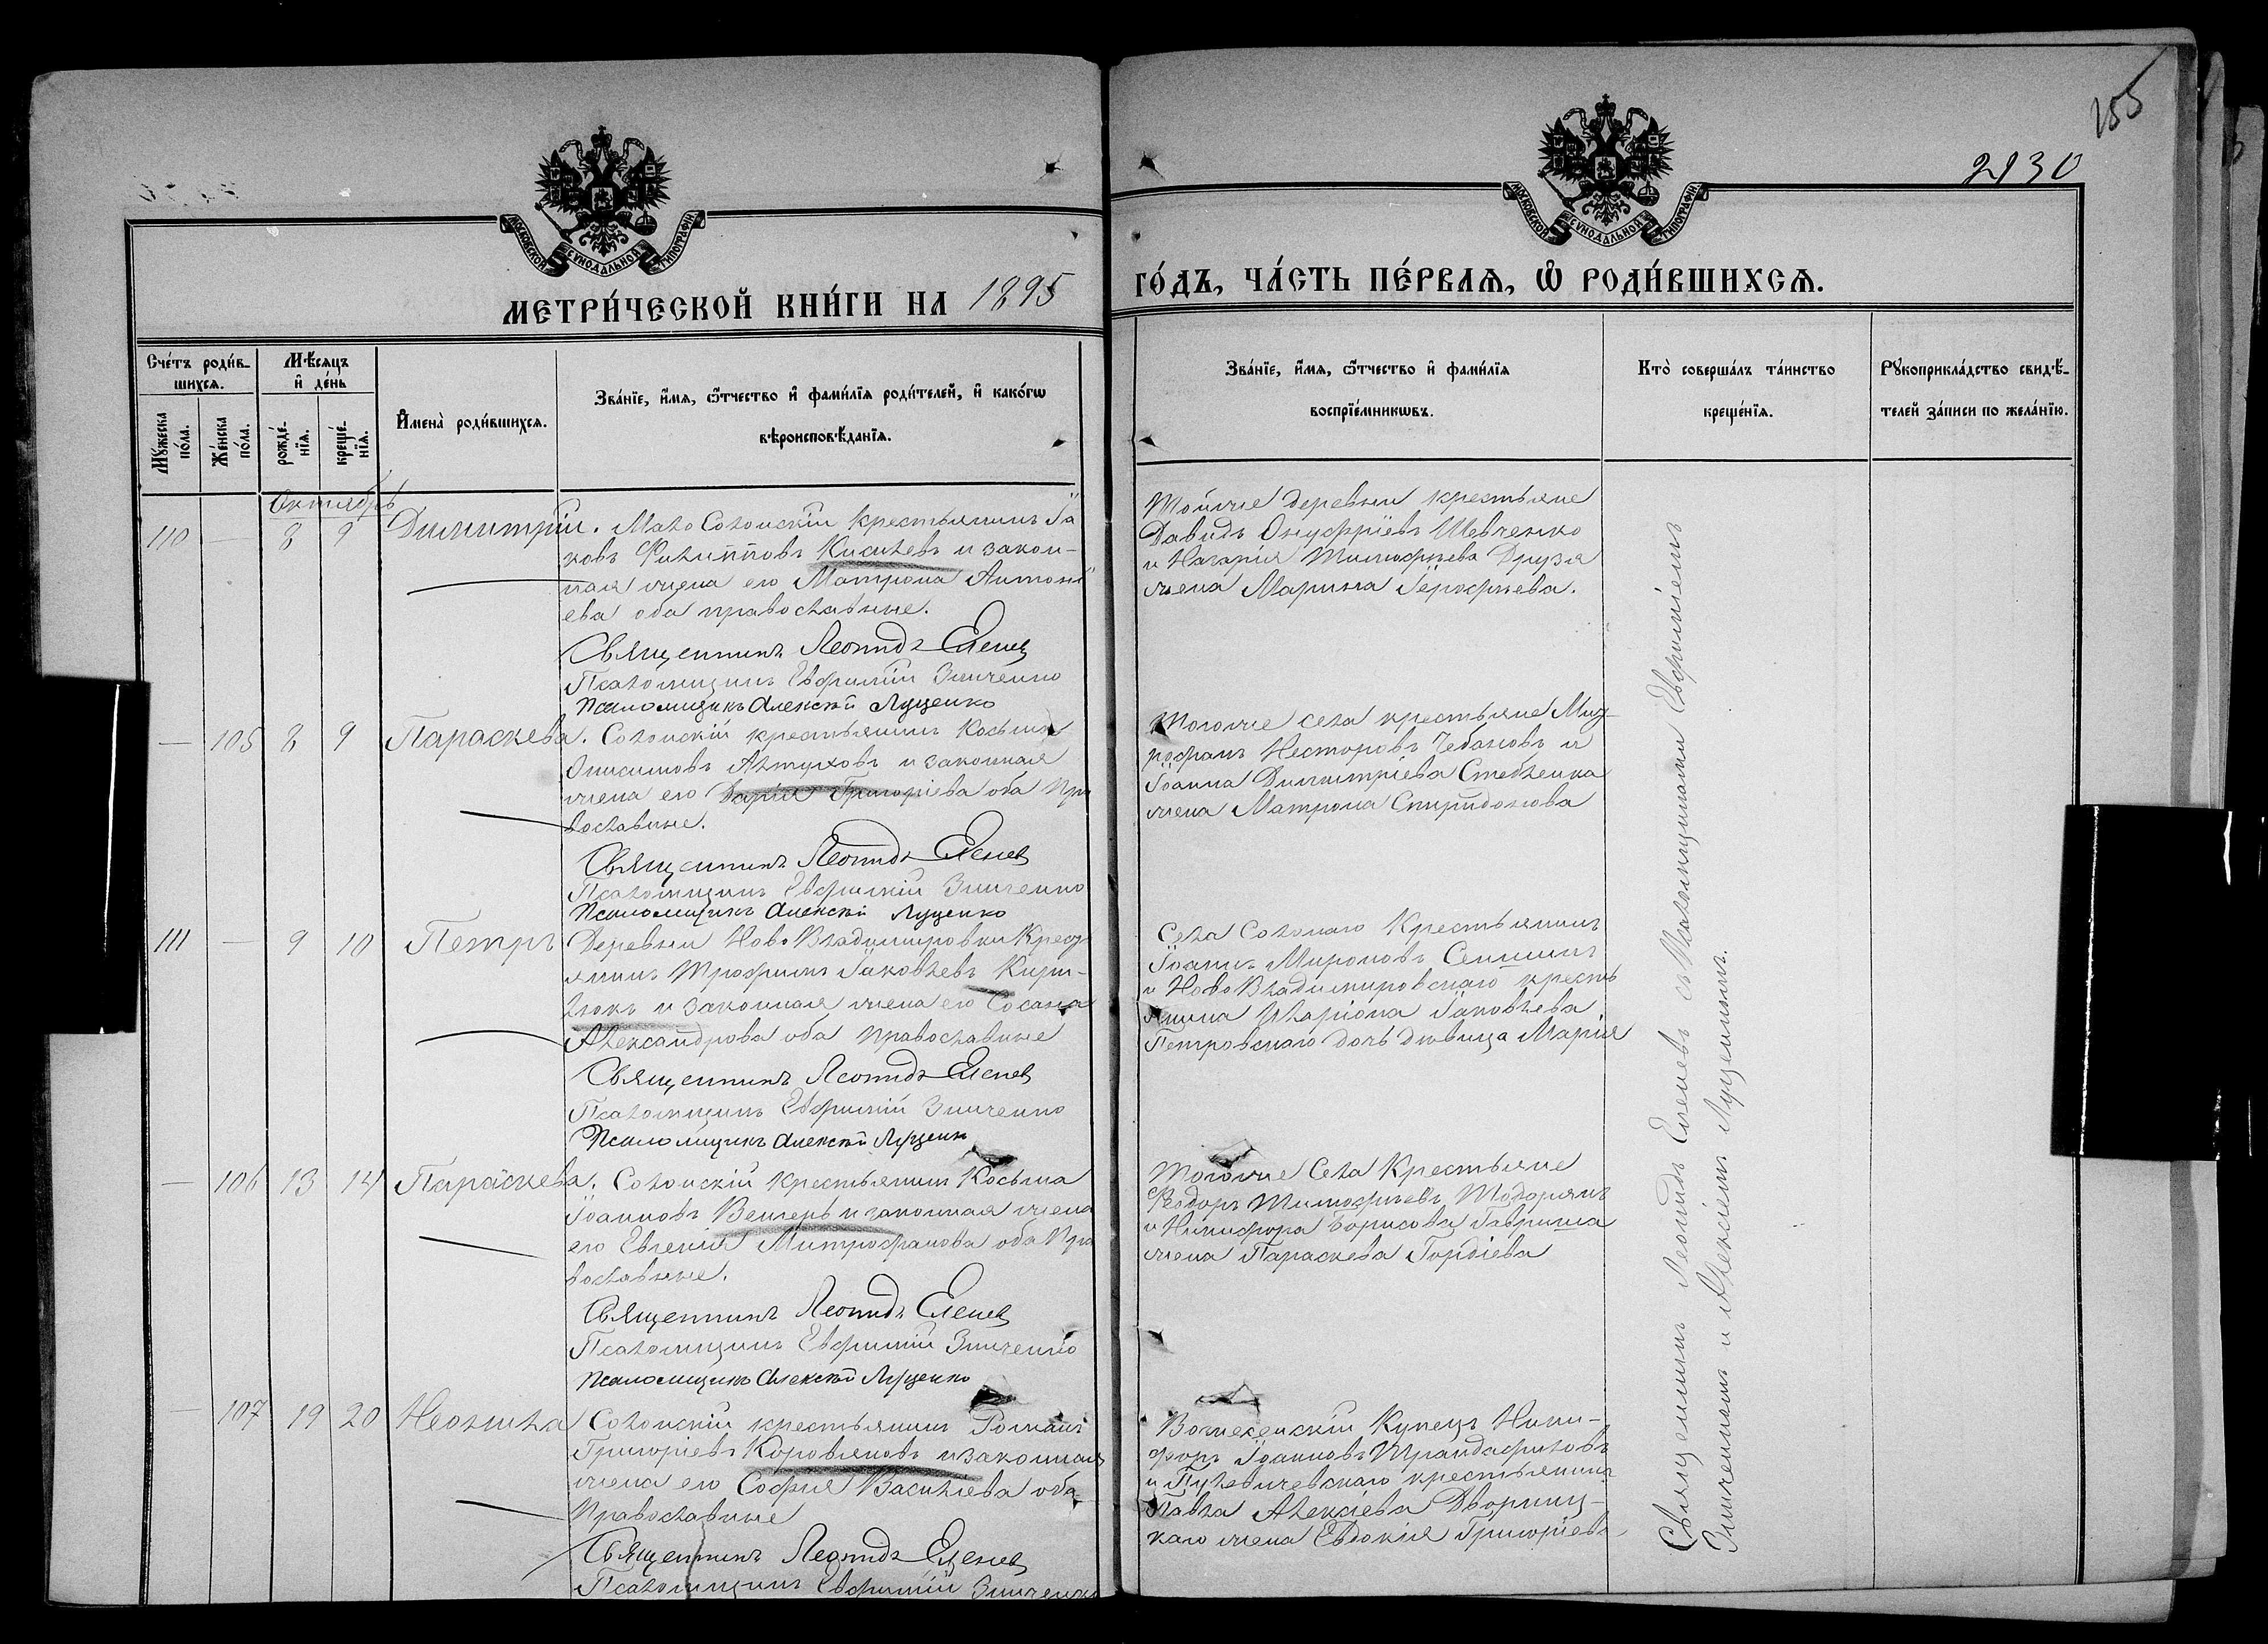 155
2130
МОСКОВСКОЙ СѴНОДАЛЬНОЙ ТИПОГРАФІИ
МОСКОВСКОЙ СѴНОДАЛЬНОЙ ТИПОГРАФІИ
МЕТРИ́ЧЕСКОЙ КНИ́ГИ НА 1895
ГО́ДЪ, ЧА́СТЬ ПЕ́РВАѦ, Ѡ҆ РОДИ́ВШИХСѦ.
Сче́тъ роди́в-
шихсѧ.
Мꙋ́жеска по́ла.
Же́нска по́ла.
Мѣ́сѧцъ
и҆ де́нь
рожде́-нїѧ.
креще́-нїѧ.
И҆мена̀ роди́вшихсѧ.
Зва́нїе, и҆́мѧ, ѻ҆́тчество и҆ фами́лїѧ роди́телей, и҆ како́гѡ
вѣроисповѣ́данїѧ.
Зва́нїе, и҆́мѧ, ѻ҆́тчество и҆ фами́лїѧ
воспрїе́мникѡвъ.
Кто̀ соверша́лъ та́инство
креще́нїѧ.
Рꙋкоприкла́дство свидѣ́-
телей за́писи по жела́нїю.
Октябрь
110 — 8 9 Димитрій. Мало Солонскій крестьянинъ Іа
ковъ Филипповъ Киселевъ и закон-
ная жена его Матрона Антоні
ева оба православные.
Священникъ Леонидъ Еленев
Псаломщикъ Евфимій Зинченко
Псаломщикъ Алексѣй Луценко
Тойже деревни крестьяне
Давидъ Онуфріевъ Шевченко
и Назарія Тимофѣева Друзя
жена Марина Іерофѣева.
— 105 8 9 Параскева. Солонскій крестьянинъ Косьма
Онисимовъ Алтуховъ и законная
жена его Дарія Григоріева оба пра
вославные.
Священникъ Леонидъ Еленев
Псаломщикъ Евфимій Зинченко
Псаломщикъ Алексѣй Луценко
Тогоже села крестьяне Мит
рофанъ Несторовъ Чебановъ и
Іоанна Димитріева Стебленка
жена Матрона Спиридонова
111 — 9 10 Петръ Деревни Ново Владимировки Крест
янинъ Трофимъ Іаковлевъ Кири-
люкъ и законная жена его Сосанна
Александрова оба православные
Священникъ Леонидъ Еленев
Псаломщикъ Евфимій Зинченко
Псаломщикъ Алексѣй Луценко
Села Солонаго Крестьянинъ
Іоаннъ Мироновъ Сенишинъ
и Ново Владимировскаго кресть
янина Иларіона Іаковлева
Петровскаго дочь дѣвица Марія
— 106 13 14 Параскева. Солонскій Крестьянинъ Косьма
Іоанновъ Венгеръ и законная жена
его Евгенія Митрофанова оба пра
вославные.
Священникъ Леонидъ Еленев
Псаломщикъ Евфимій Зинченко
Псаломщикъ Алексѣй Луценко
Тогоже Села Крестьяне
Ѳеодоръ Тимофѣевъ Тодорянъ
и Никифора Борисова Гавриша
жена Параскева Гордіева
— 107 19 20 Неонила Солонскій крестьянинъ Романъ
Григоріевъ Коровяковъ и законная
жена его Софія Васильева оба
православные
Священникъ Леонидъ Еленев
Псаломщикъ Евфимій Зинченко
Вознесенскій Купецъ Ники-
форъ Іоанновъ Трандафиловъ
крестьянина
Павла Алексіева Дворниц-
каго жена Евдокія Григоріева
Священникъ Леонидъ Еленевъ съ Псаломщиками Евфиміемъ
Зинченкомъ и Алексіемъ Луценкомъ.